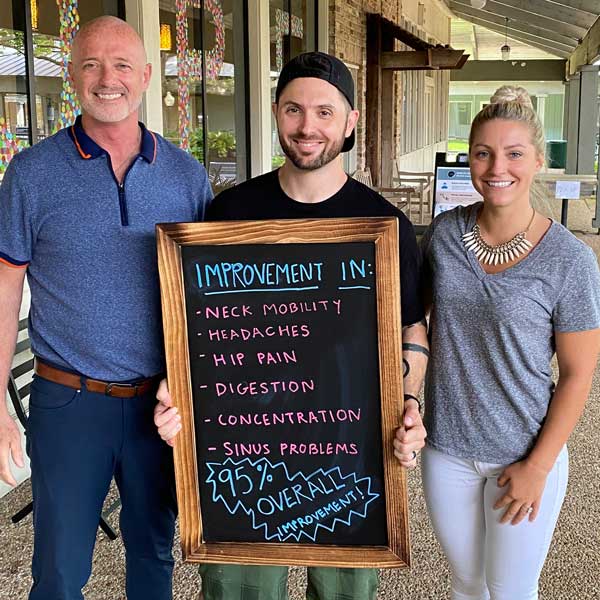 IMPROVEMENT IN:
- NECK MOBILITY
- HEADACHES
- HIP PAIN
- DIGESTION
- CONCENTRATION
- SINUS PROBLEMS
95%
OVERALL
IMPROVEMENT!